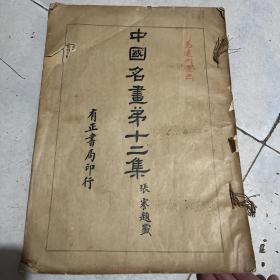 中國名畫第十二集
張謇題籤
有正書局印行